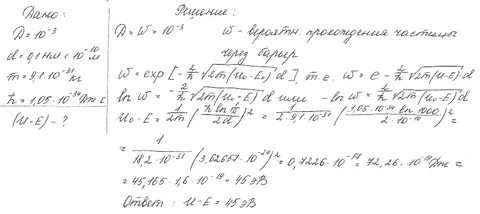 Дано:
D = 10⁻³
d = 0,1 нм = 10⁻¹⁰ м
m = 9,1·10⁻³¹ кг
ħ = 1,05·10⁻³⁴ Дж·с
(U-E) - ?
Решение:
D = W = 10⁻³ W - вероятн. прохождения частицы
через барьер
W = exp[-2/ħ √2m(U₀-E₀) d], т.е. W = e - 2/ħ √2m(U-E) d
ln W = -2/ħ √2m(U₀-E) d или -ln W = 2/ħ √2m(U₀-E) d
U₀-E = 1/2m (ħ ln /2d)² = 1/2·9,1·10⁻³¹ (1,05·10⁻³⁴ ln 1000/2·10⁻¹⁰)² =
= 1/18,2·10⁻³¹ (3,62657·10⁻²⁴)² = 0,7226·10⁻¹⁷ = 72,26·10⁻¹⁹ Дж =
= 45,165·1,6·10⁻¹⁹ = 45 эВ
Ответ: U-E = 45 эВ